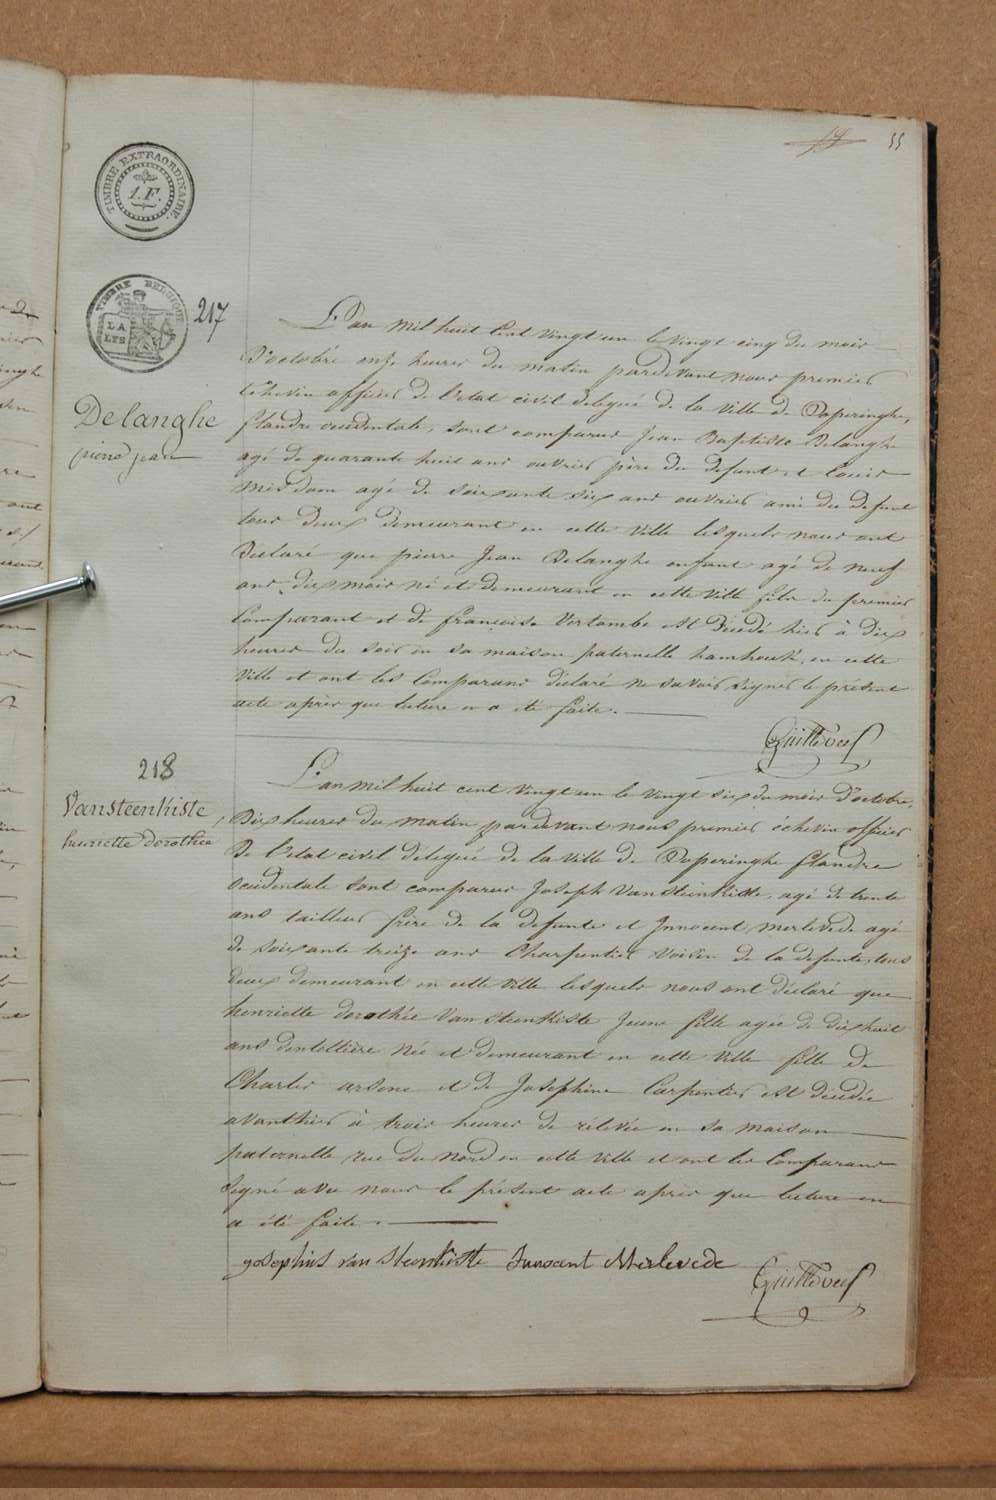 55
TIMBRE EXTRAORDINAIRE.
1.F.
TIMBRE BELGIQUE
LA
LYS
217
Delanghe
pierre jean
L'an mil huit Cent Vingt un le Vingt cinq du mois
D'octobre onze heures du matin pardevant nous premier
Echevin officier de l'etat civil delegué de la Ville de Poperinghe,
flandre occidentale, sont comparus Jean Baptiste Delanghe
agé de quarante huit ans ouvrier père du defunt et Louis
Misdom agé de soixante six ans ouvrier ami du defunt
tous deux demeurant en cette Ville lesquels nous ont
Déclaré que pierre Jean Delanghe enfant agé de neuf
ans dix mois né et demeurant en cette Ville fils du premier
Comparant et de françoise Vertombe est Décédé hier à dix
heures du soir en sa maison paternelle hamhoek, en cette
Ville et ont les Comparans déclaré ne savoir signer le présent
acte après que lecture en a été faite.
218
Vansteenkiste,
henriette dorothée
L'an mil huit cent Vingt un le Vingt six du mois d'octobre,
Dix heures du matin pardevant nous premier échevin officier
De l'etat civil délegué de la Ville de Poperinghe flandre
occidentale sont comparus Joseph Vansteenkiste, agé de trente
ans tailleur frère de la defunte et Innocent merlevede agé
de soixante treize ans Charpentier Voisin de la defunte, tous
deux demeurant en cette Ville lesquels nous ont déclaré que
henriette dorothée Vansteenkiste Jeune fille agée de dixhuit
ans dentellière Née et demeurant en cette Ville fille de
Charles arsene et de Josephine Carpentier est décédée
avanthier à trois heures de rélévée en sa maison
paternelle rue du Nord en cette Ville et ont les Comparans
Signé avec nous le présent acte après que lecture en
a été faite.
yosephus van steenkiste Innocent Merlevede